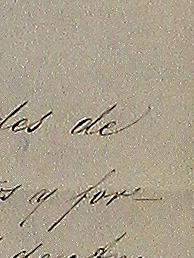 les de
s y for-